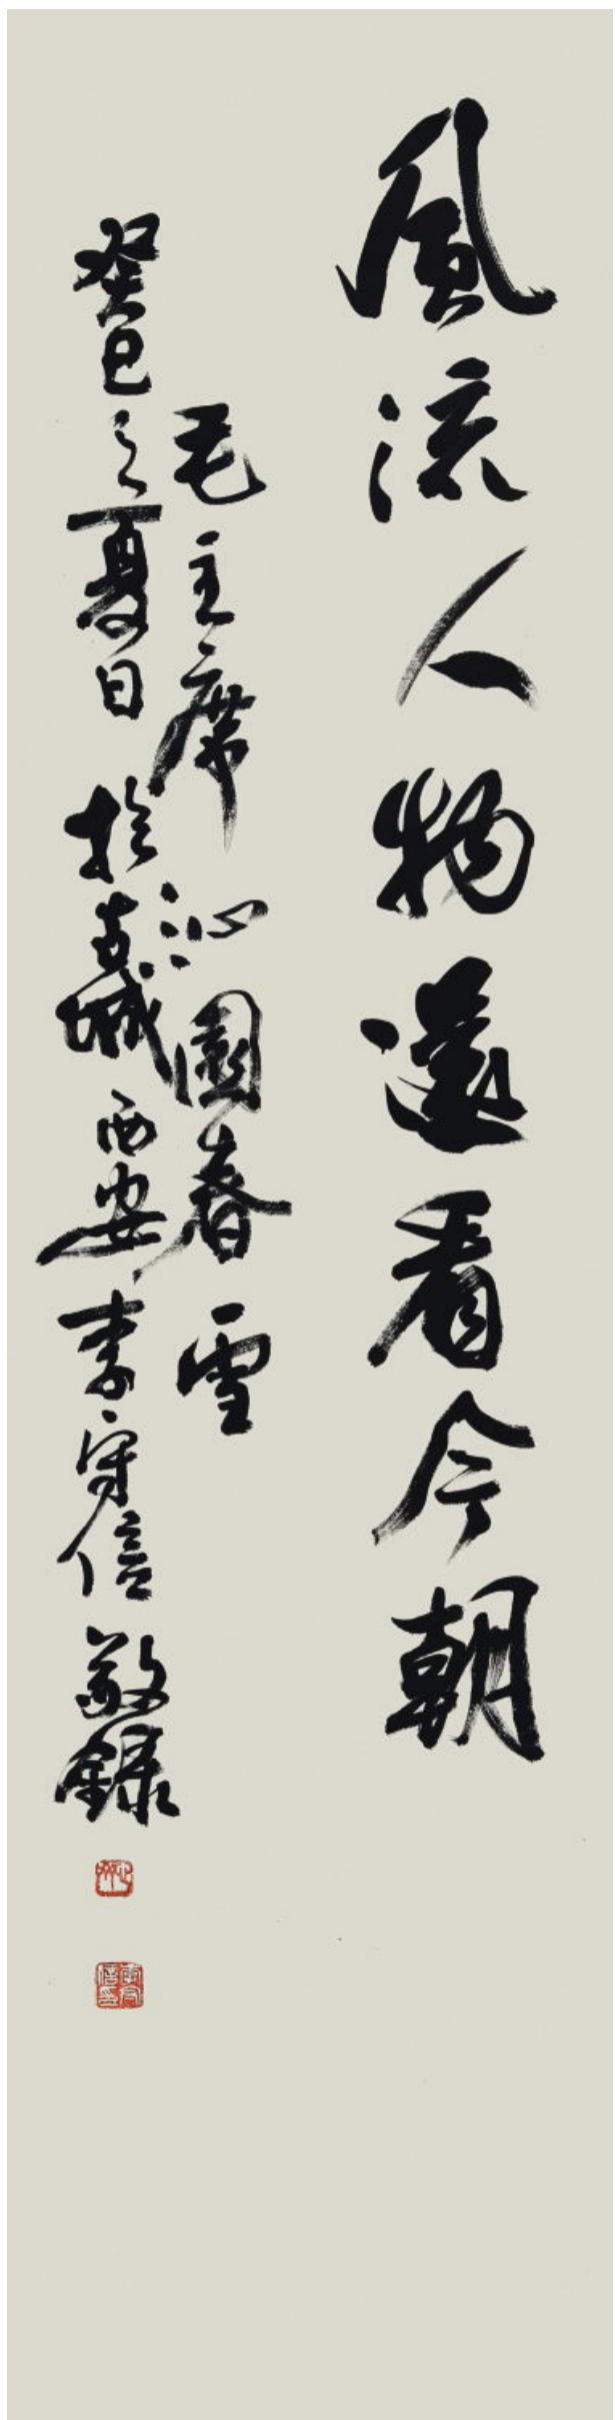 風流人物還看今朝
毛主席沁園春雪
癸巳之夏日於古城西安李守信敬錄